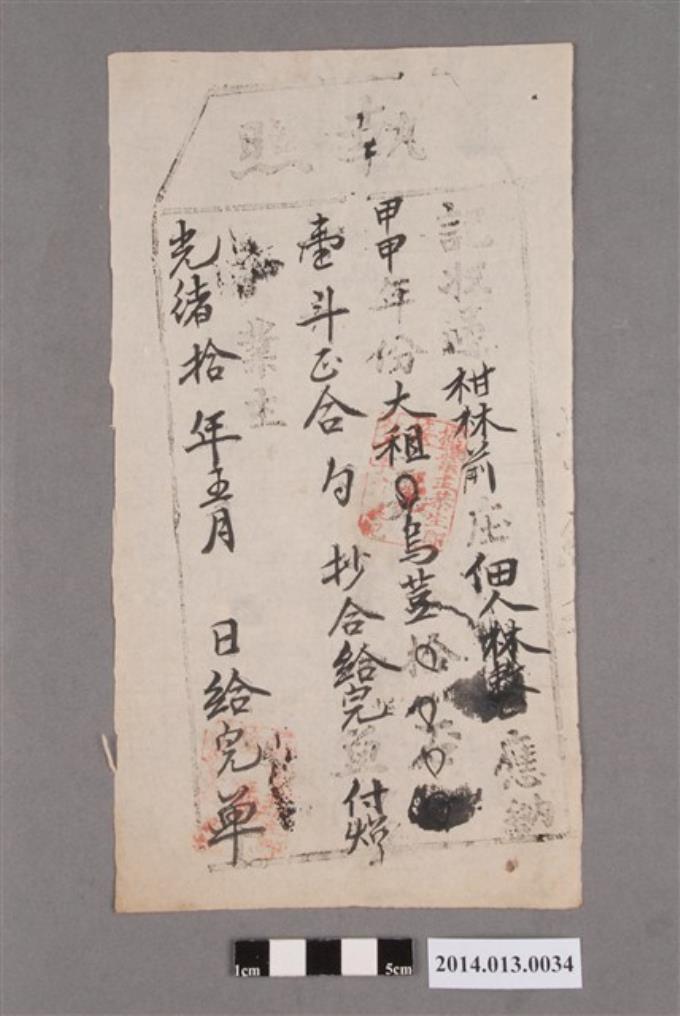 執照
記收過柑林前庄佃人林 應納
甲申年份大租 烏荳拾
壹斗正合勺抄合給完單付炤
業主
光緒拾年五月 日給完單
1cm 5cm
2014.013.0034